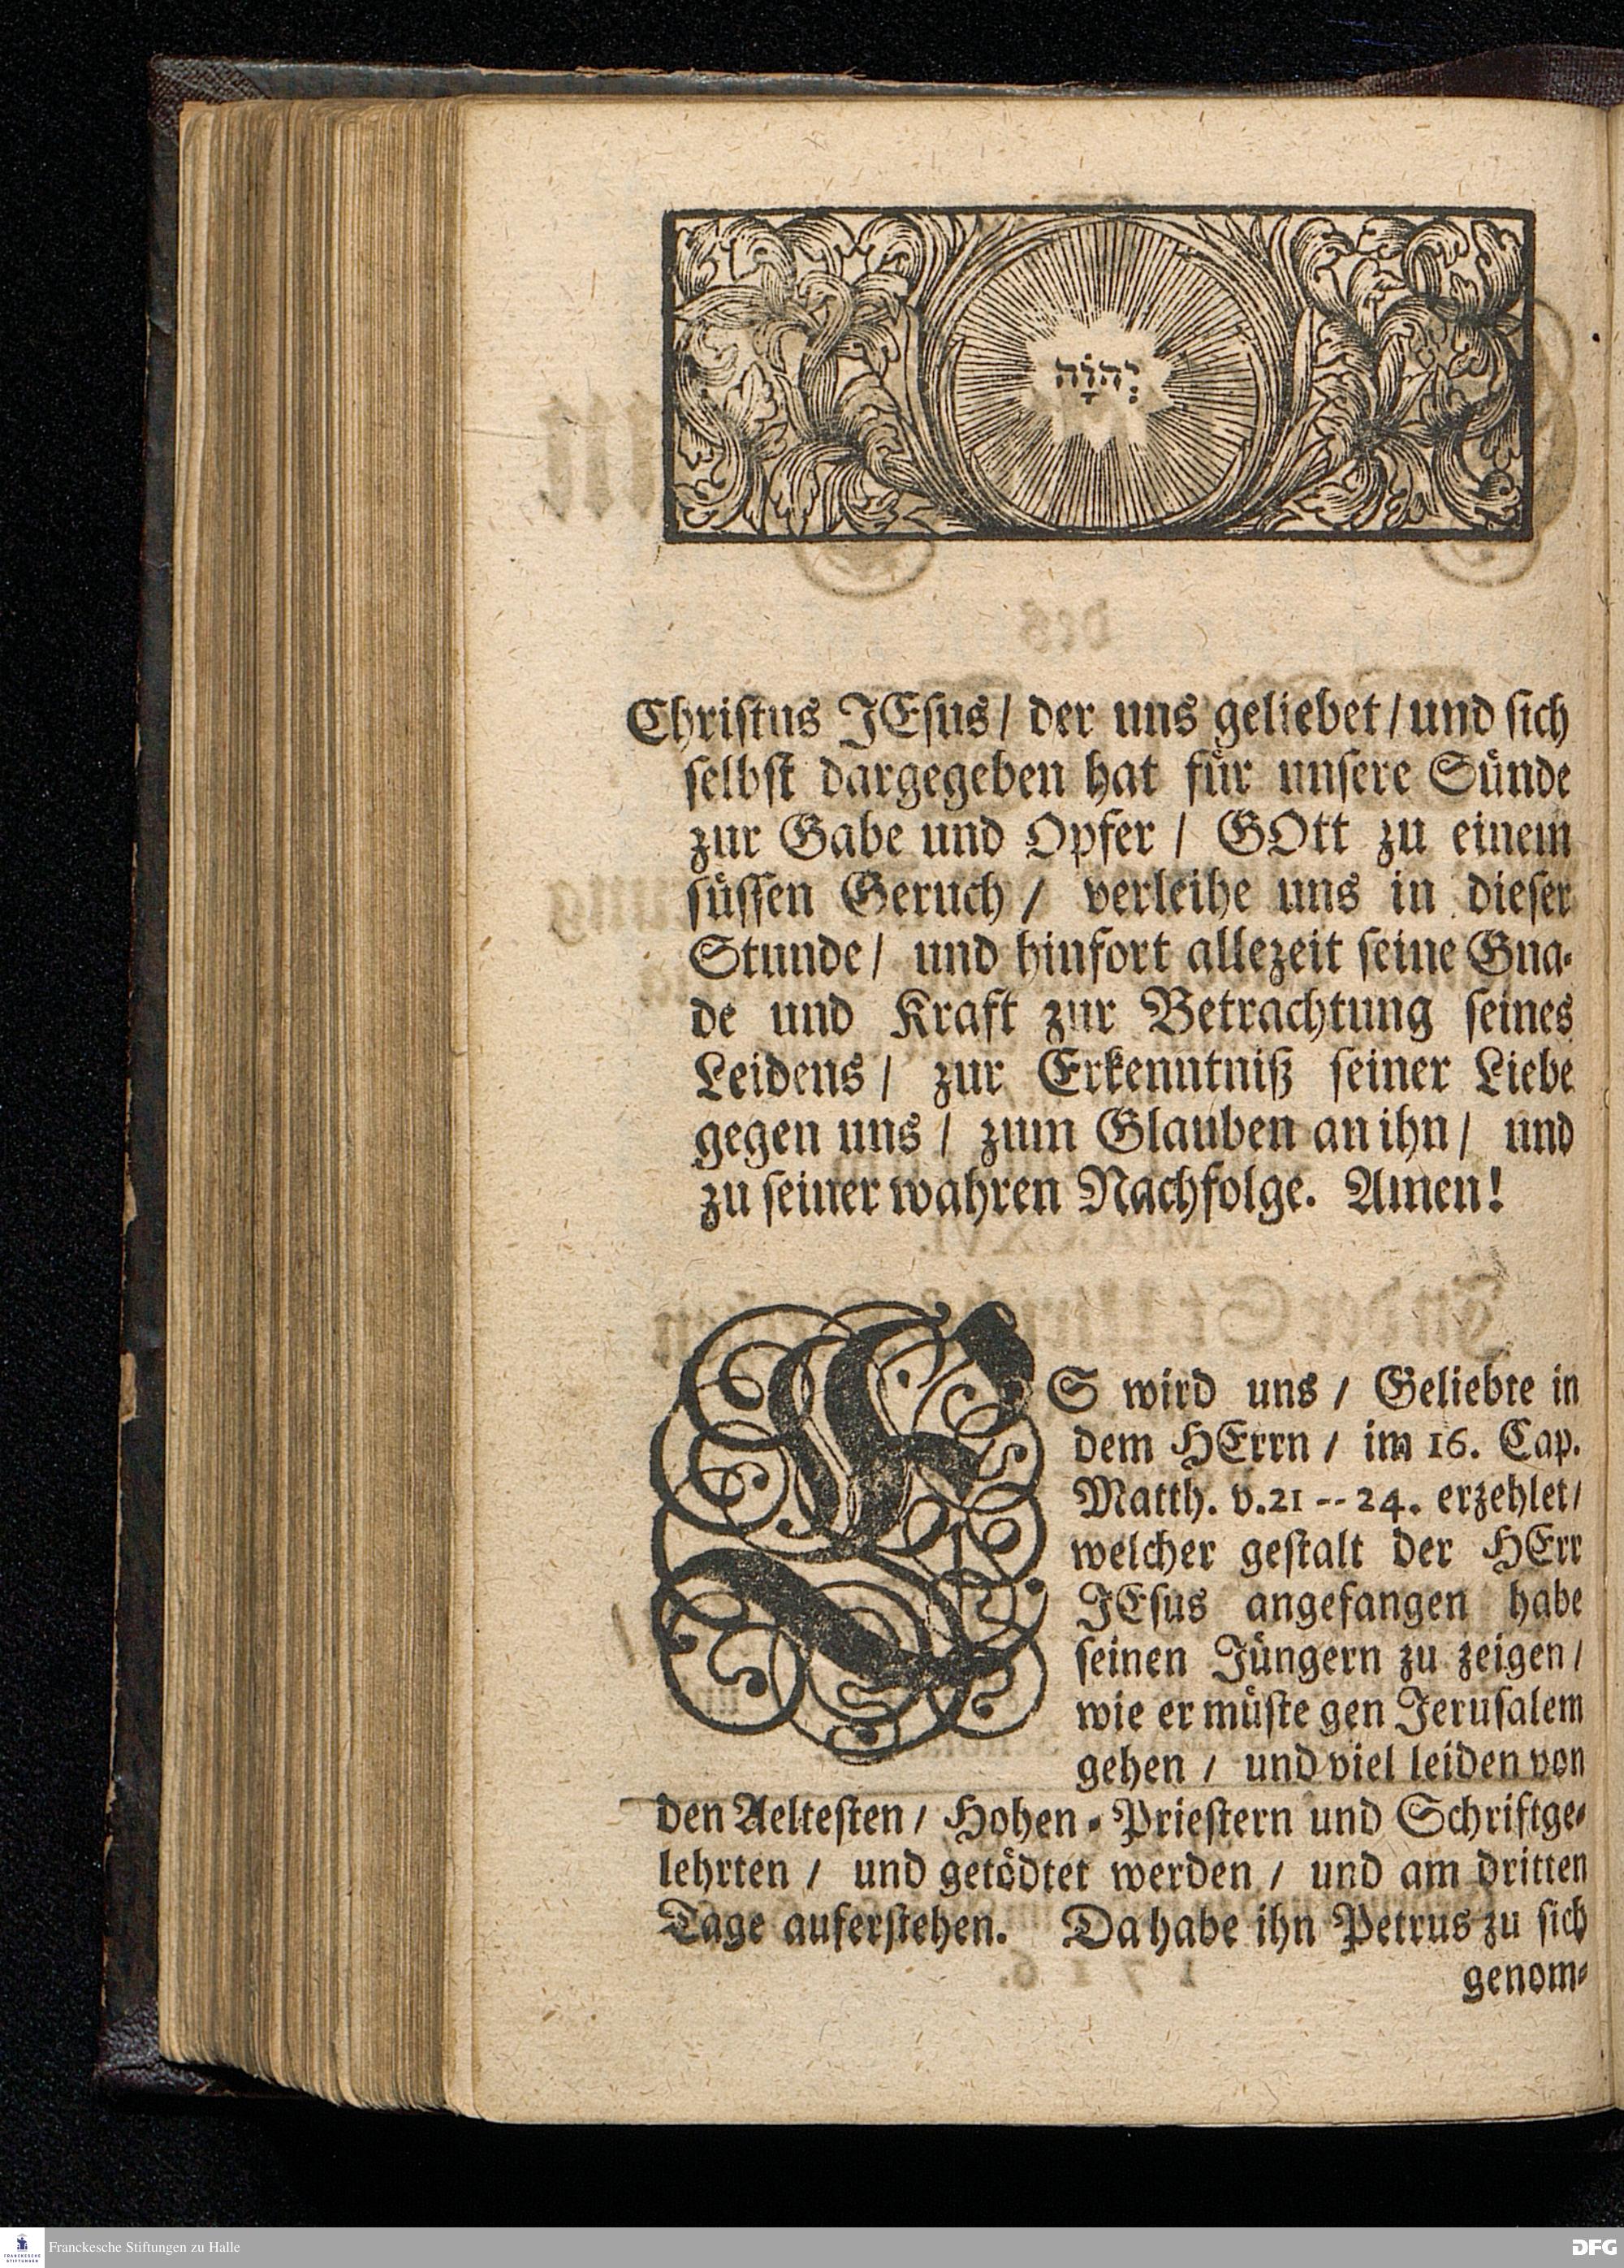 יְהוָֹה
Christus JEsus / der uns geliebet / und sich
selbst dargegeben hat für unsere Sünde
zur Gabe und Opfer / GOtt zu einem
süssen Geruch / verleihe uns in dieser
Stunde / und hinfort allezeit seine Gna-
de und Kraft zur Betrachtung seines
Leidens / zur Erkenntniß seiner Liebe
gegen uns / zum Glauben an ihn / und
zu seiner wahren Nachfolge. Amen!
ES wird uns / Geliebte in
dem HErrn / im 16. Cap.
Matth. v. 21 -- 24. erzehlet /
welcher gestalt der HErr
JEsus angefangen habe
seinen Jüngern zu zeigen /
wie er müste gen Jerusalem
gehen / und viel leiden von
den Aeltesten / Hohen-Priestern und Schriftge-
lehrten / und getödtet werden / und am dritten
Tage auferstehen. Da habe ihn Petrus zu sich
genom-
FRANCKESCHE
STIFTUNGEN
Franckesche Stiftungen zu Halle
DFG